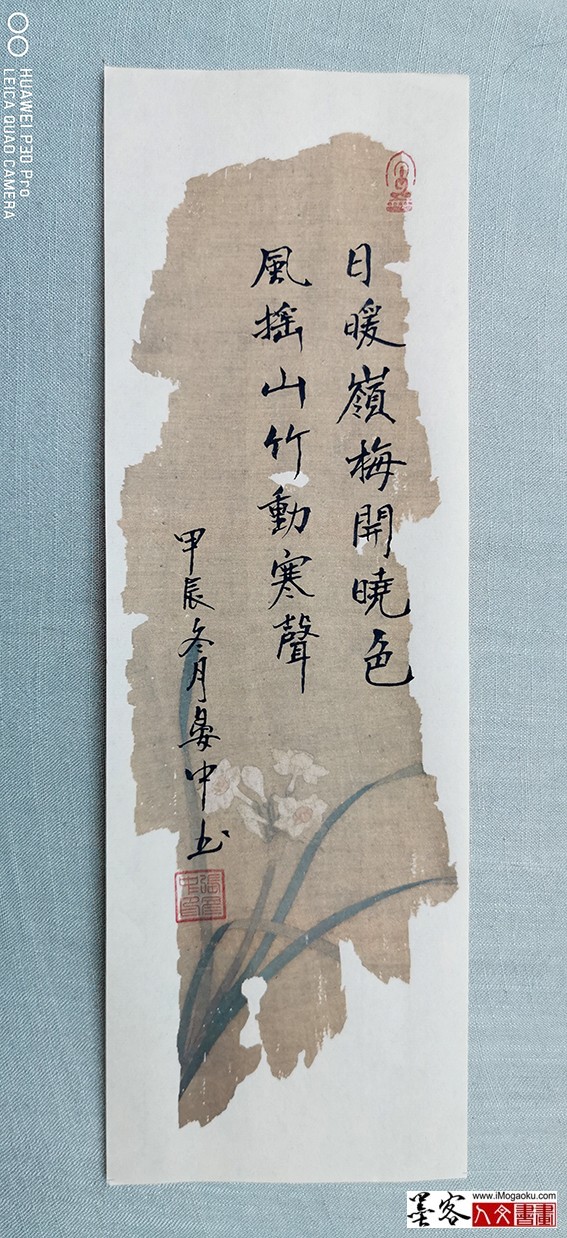 日暖嶺梅開曉色
風搖山竹動寒聲
甲辰冬月晏中书
HUAWEI P30 Pro
LEICA QUAD CAMERA
墨客
www.iMogaoku.com
人文書畫